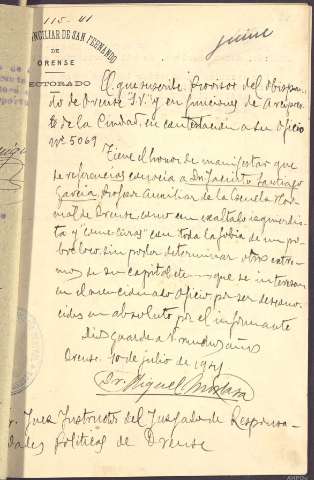 115-41
NCILIAR DE SAN FERNANDO
DE
ORENSE
ECTORADO
El que suscribe Provisor del Obispa-
do de Orense "S.V." y en funciones de Arcipres-
te de la Ciudad, en contestación a su oficio
nº 5069
Tiene el honor de manifestar que
referencias conocía a Dn Jacinto Santiago
García, Profesor Auxiliar de la Escuela Nor-
mal de Orense, como un exaltado izquierdis-
ta y "comecuras" con toda la fobia de un po-
bre loco, sin poder determinar otros extre-
mos que se interesan
en el mencionado oficio por ser descono-
cidos en absoluto por el informante
Dios guarde a V. muchos años
Orense, 10 de julio de 1941
Dr. Miguel
r. Juez Instructor del Juzgado de Responsa-
dades políticas de Orense